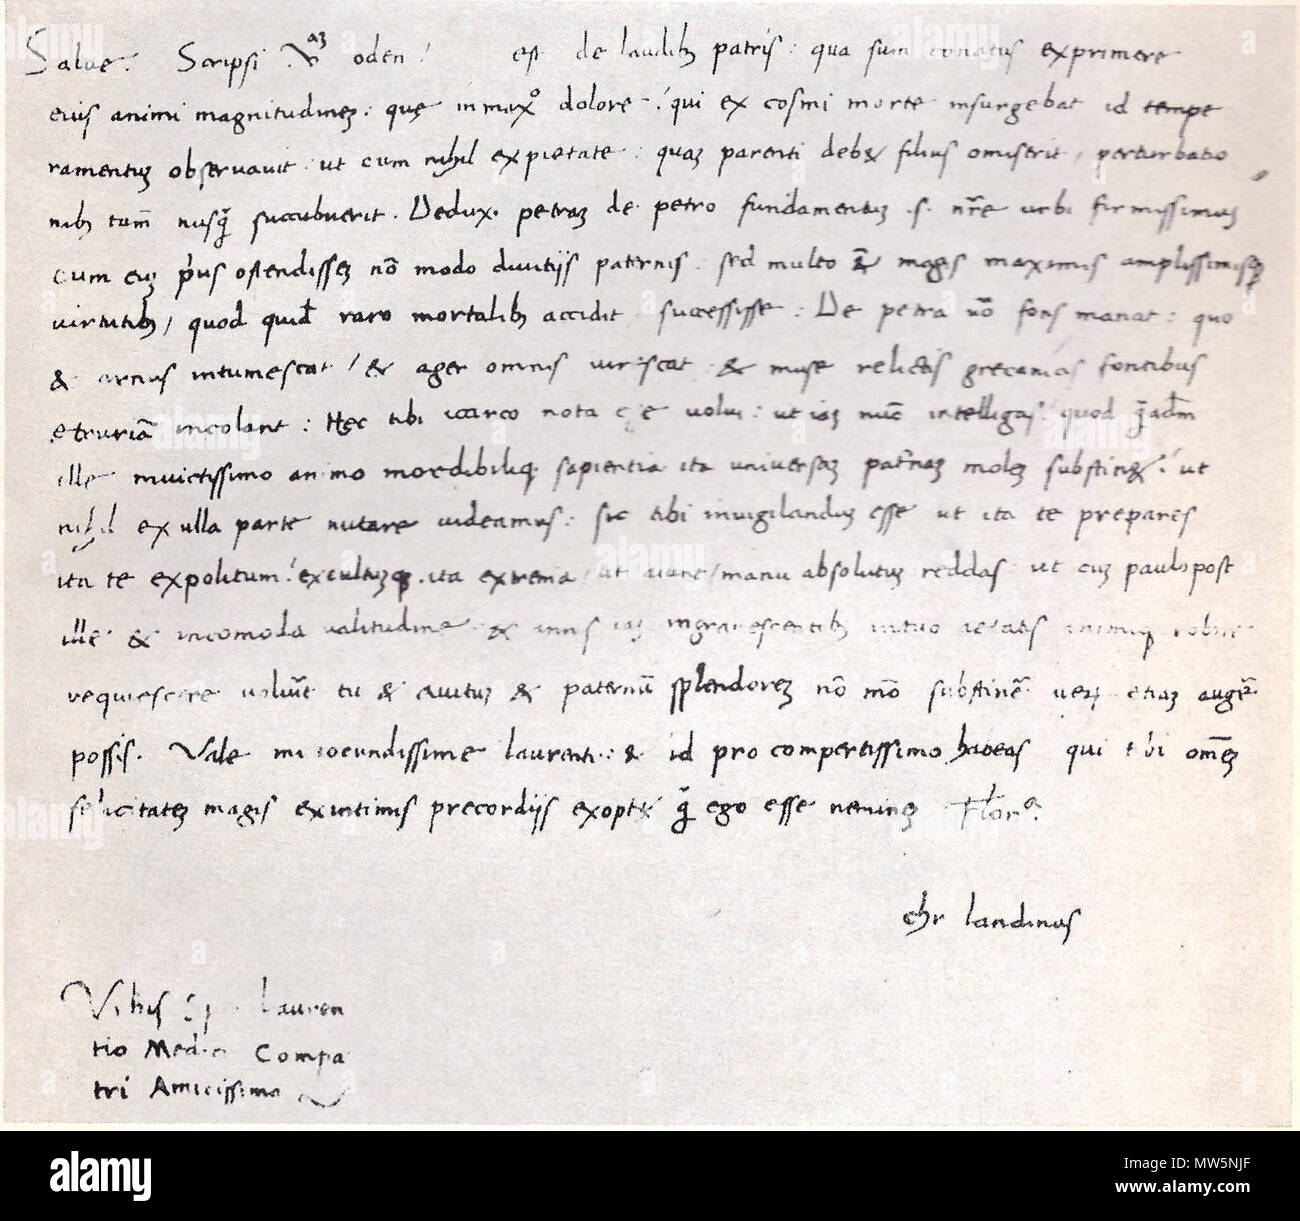 Salue. Scripsi oden! est de laudibꝫ patris: qua sum conatus exprimere
eius animi magnitudineꝫ: quę in maxº dolore! qui ex cosmi morte insurgebat id tempe
ramentuꝫ obseruauit ut cum nihil ex pietate: quaꝫ parenti debet filius omiserit, perturbatio
nibꝫ tam̄ nusq̃ succubuerit. Dedux. petraꝫ de petro fundamentuꝫ .s. nr̃e urbi firmissimuꝫ
cum euꝫ prius ostendisseꝫ nō modo diuitijs paternis. sed multo magis maximis amplissimisqꝫ
uirtutibꝫ, quod quidē raro mortalibꝫ accidit successisse: De petra uō fons manat: quo
& arnus intumescat! & ager omnis uiriscat & muse relictis grecanicis fontibus
etruriā incolant: Hęc tibi nota eē uolui: ut iaꝫ nūc intelligas quod q̃adm̄
ille inuictissimo animo sapientia ita uniuersaꝫ pat̃naꝫ moleꝫ substinet! ut
nihil ex ulla parte nutare uideamus: sic tibi inuigilanduꝫ esse ut ita te prepares
ita te expolitum! excultuꝫqꝫ. ita extrema manu absolutuꝫ reddas ut cuꝫ paulo post
ille & incomoda ualitudine & annis iaꝫ ingrauescentibꝫ
requiescere uoluēt tu & auituꝫ & paternū splendoreꝫ nō mō substinē. etiaꝫ augē.
possis. Vale mi iocundissime laurenti: & id pro compertissimo habeas qui tibi om̄eꝫ
felicitateꝫ magis ex intimis precordijs exoptet q̃ ego esse nemineꝫ Flor.ᵃ
chr landinus
laurenti
tio Medici Compa
tri Amicissimo
alamy
Image ID: MW5NJF
www.alamy.com